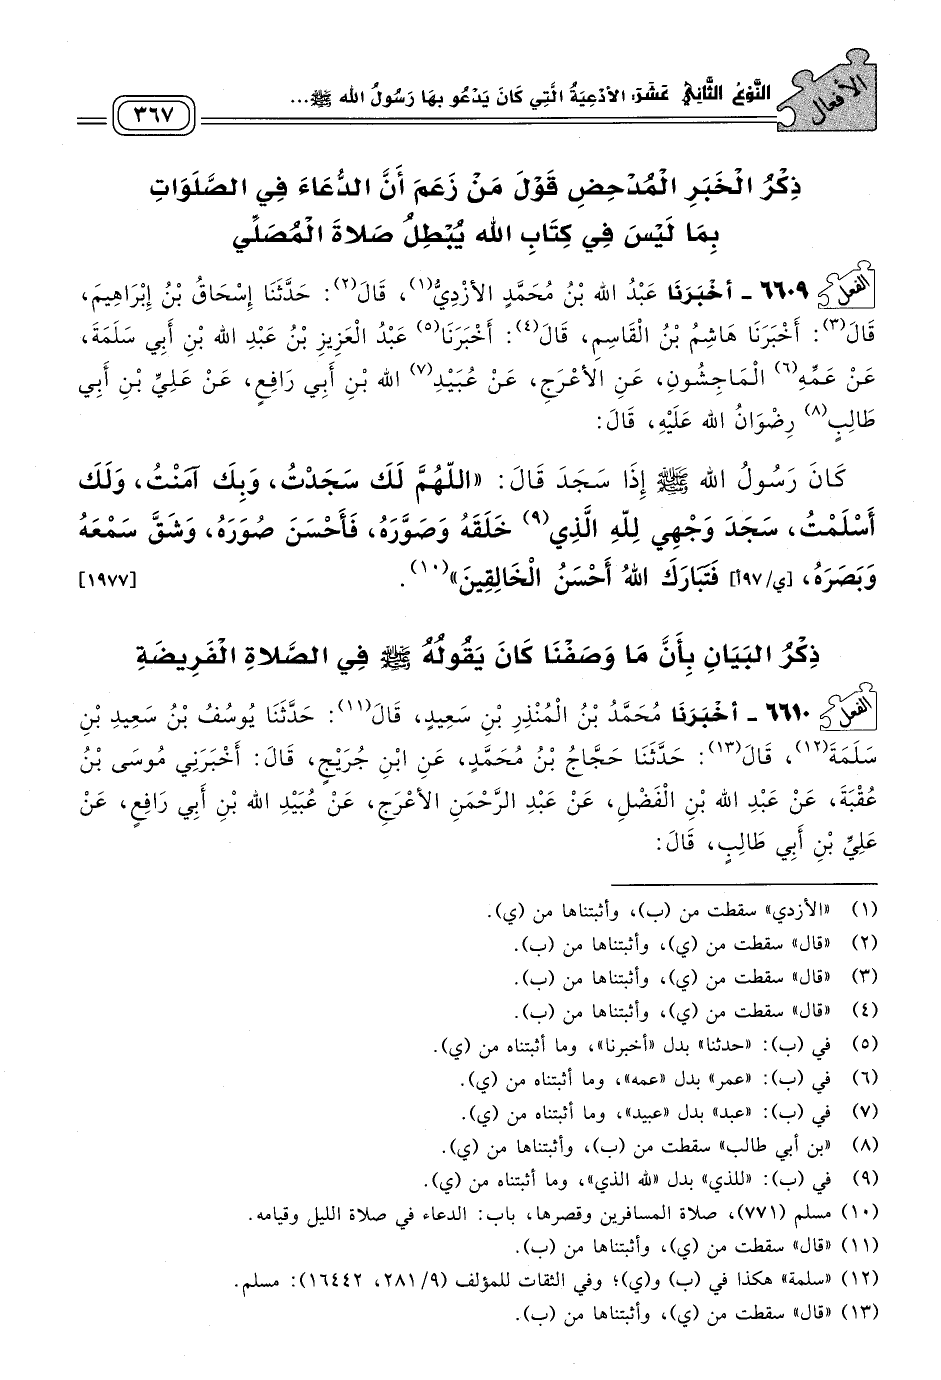 الأفعال
النَّوْعُ الثَّانِي عَشَرَ: الأَدْعِيَةُ الَّتِي كَانَ يَدْعُو بِهَا رَسُولُ الله ﷺ...
٣٦٧
ذِكْرُ الْخَبَرِ الْمُدْحِضِ قَوْلَ مَنْ زَعَمَ أَنَّ الدُّعَاءَ فِي الصَّلَوَاتِ
بِمَا لَيْسَ فِي كِتَابِ الله يُبْطِلُ صَلاةَ الْمُصَلِّي
الفعل ٦٦٠٩ - أَخْبَرَنَا عَبْدُ الله بْنُ مُحَمَّدٍ الأَزْدِيُّ(١)، قَالَ(٢): حَدَّثَنَا إِسْحَاقُ بْنُ إِبْرَاهِيمَ،
قَالَ(٣): أَخْبَرَنَا هَاشِمُ بْنُ الْقَاسِمِ، قَالَ(٤): أَخْبَرَنَا(٥) عَبْدُ الْعَزِيزِ بْنُ عَبْدِ الله بْنِ أَبِي سَلَمَةَ،
عَنْ عَمِّهِ(٦) الْمَاجِشُونِ، عَنِ الأَعْرَجِ، عَنْ عُبَيْدِ(٧) الله بْنِ أَبِي رَافِعٍ، عَنْ عَلِيِّ بْنِ أَبِي
طَالِبٍ(٨) رِضْوَانُ الله عَلَيْهِ، قَالَ:
كَانَ رَسُولُ الله ﷺ إِذَا سَجَدَ قَالَ: «اللّهُمَّ لَكَ سَجَدْتُ، وَبِكَ آمَنْتُ، وَلَكَ
أَسْلَمْتُ، سَجَدَ وَجْهِي لِلّهِ الَّذِي(٩) خَلَقَهُ وَصَوَّرَهُ، فَأَحْسَنَ صُوَرَهُ، وَشَقَّ سَمْعَهُ
وَبَصَرَهُ، [ي/١٩٧] فَتَبَارَكَ اللهُ أَحْسَنُ الْخَالِقِينَ»(١٠). [١٩٧٧]
ذِكْرُ البَيَانِ بِأَنَّ مَا وَصَفْنَا كَانَ يَقُولُهُ ﷺ فِي الصَّلاةِ الْفَرِيضَةِ
الفعل ٦٦١٠ - أَخْبَرَنَا مُحَمَّدُ بْنُ الْمُنْذِرِ بْنِ سَعِيدٍ، قَالَ(١١): حَدَّثَنَا يُوسُفُ بْنُ سَعِيدِ بْنِ
سَلَمَةَ(١٢)، قَالَ(١٣): حَدَّثَنَا حَجَّاجُ بْنُ مُحَمَّدٍ، عَنِ ابْنِ جُرَيْجٍ، قَالَ: أَخْبَرَنِي مُوسَى بْنُ
عُقْبَةَ، عَنْ عَبْدِ الله بْنِ الْفَضْلِ، عَنْ عَبْدِ الرَّحْمَنِ الأَعْرَجِ، عَنْ عُبَيْدِ الله بْنِ أَبِي رَافِعٍ، عَنْ
عَلِيِّ بْنِ أَبِي طَالِبٍ، قَالَ:
(١) «الأزدي» سقطت من (ب)، وأثبتناها من (ي).
(٢) «قال» سقطت من (ي)، وأثبتناها من (ب).
(٣) «قال» سقطت من (ي)، وأثبتناها من (ب).
(٤) «قال» سقطت من (ي)، وأثبتناها من (ب).
(٥) في (ب): «حدثنا» بدل «أخبرنا»، وما أثبتناه من (ي).
(٦) في (ب): «عمر» بدل «عمه»، وما أثبتناه من (ي).
(٧) في (ب): «عبد» بدل «عبيد»، وما أثبتناه من (ي).
(٨) «بن أبي طالب» سقطت من (ب)، وأثبتناها من (ي).
(٩) في (ب): «للذي» بدل «لله الذي»، وما أثبتناه من (ي).
(١٠) مسلم (٧٧١)، صلاة المسافرين وقصرها، باب: الدعاء في صلاة الليل وقيامه.
(١١) «قال» سقطت من (ي)، وأثبتناها من (ب).
(١٢) «سلمة» هكذا في (ب) و(ي)؛ وفي الثقات للمؤلف (٩/ ٢٨١، ١٦٤٤٢): مسلم.
(١٣) «قال» سقطت من (ي)، وأثبتناها من (ب).